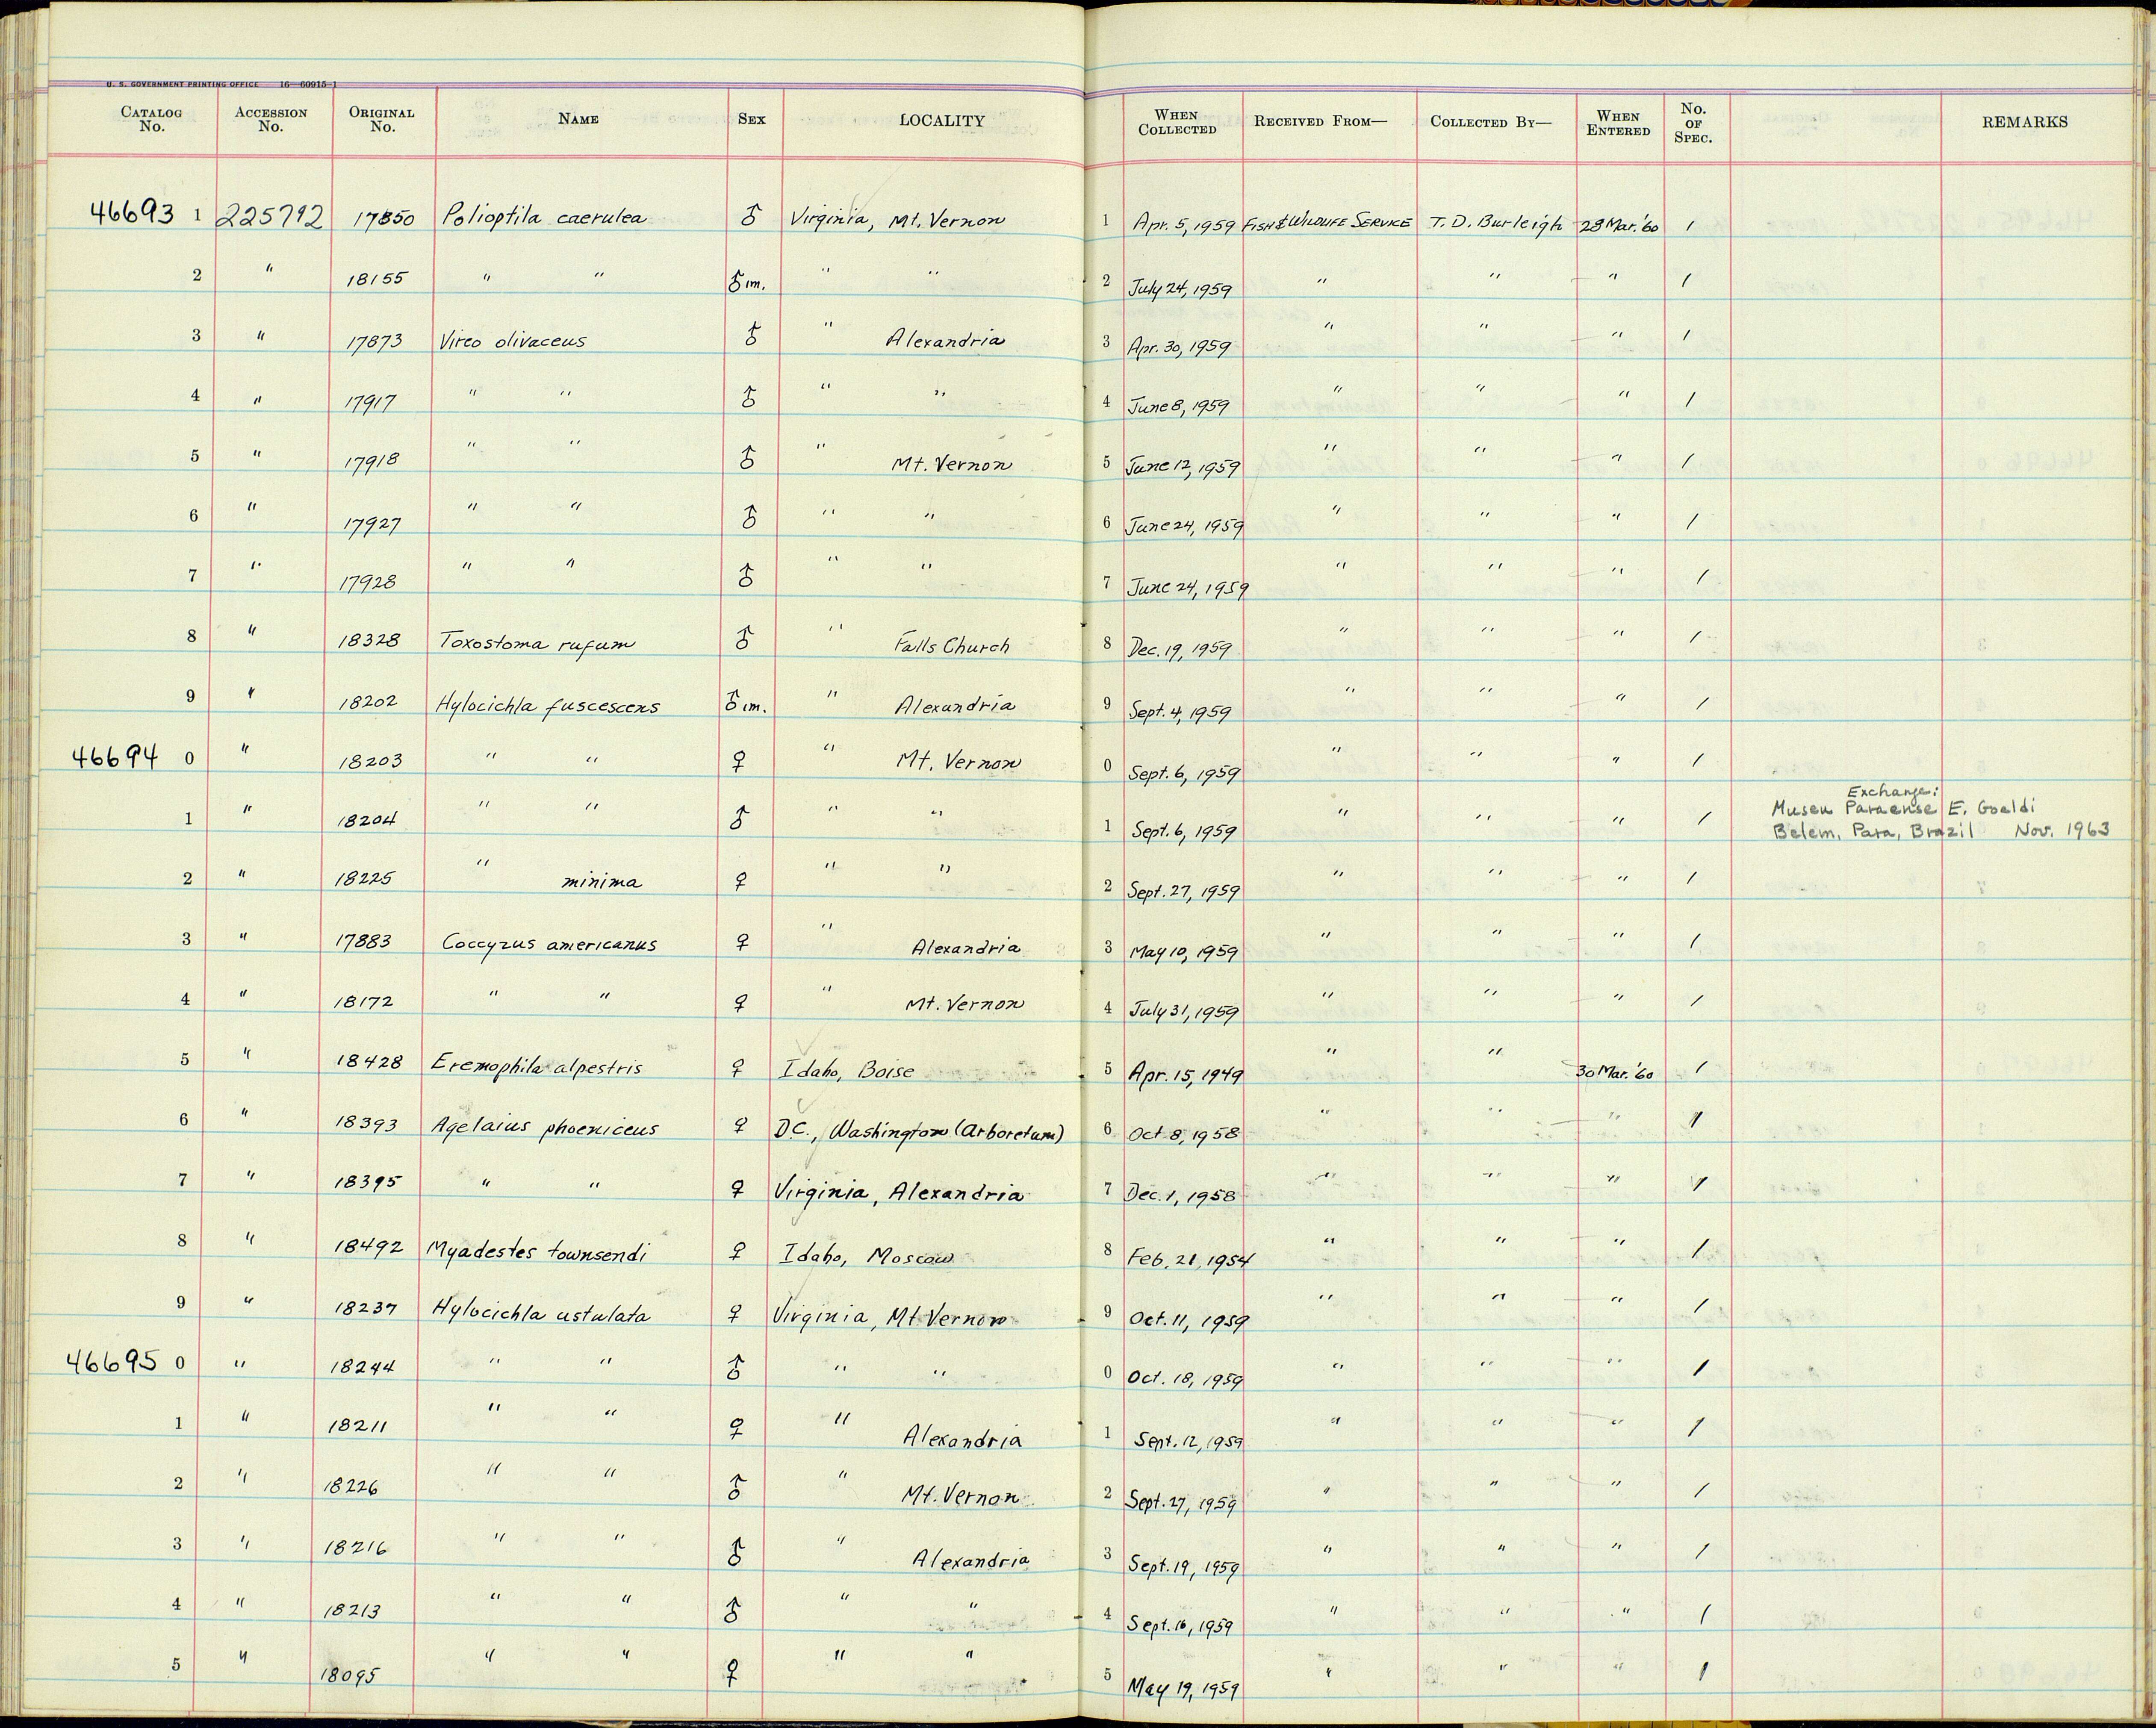 U. S. GOVERNMENT PRINTING OFFICE 16—60915-1
CATALOG No. ACCESSION No. ORIGINAL No. NAME SEX LOCALITY WHEN COLLECTED RECEIVED FROM— COLLECTED BY— WHEN ENTERED No. OF SPEC. REMARKS
46693 1 225792 17850 Polioptila caerulea ♂ Virginia, Mt. Vernon 1 Apr. 5, 1959 FISH & WILDLIFE SERVICE T. D. Burleigh 28 Mar. '60 1
2 " 18155 " " ♂ im. " " 2 July 24, 1959 " " " 1
3 " 17873 Vireo olivaceus ♂ " Alexandria 3 Apr. 30, 1959 " " " 1
4 " 17917 " " ♂ " " 4 June 8, 1959 " " " 1
5 " 17918 " " ♂ " Mt. Vernon 5 June 12, 1959 " " " 1
6 " 17927 " " ♂ " " 6 June 24, 1959 " " " 1
7 " 17928 " " ♂ " " 7 June 24, 1959 " " " 1
8 " 18328 Toxostoma rufum ♂ " Falls Church 8 Dec. 19, 1959 " " " 1
9 " 18202 Hylocichla fuscescens ♂ im. " Alexandria 9 Sept. 4, 1959 " " " 1
46694 0 " 18203 " " ♀ " Mt. Vernon 0 Sept. 6, 1959 " " " 1
1 " 18204 " " ♂ " " 1 Sept. 6, 1959 " " " 1 Exchange:
Museu Paraense E. Goeldi
Belem, Para, Brazil Nov. 1963
2 " 18225 " minima ♀ " " 2 Sept. 27, 1959 " " " 1
3 " 17883 Coccyzus americanus ♀ " Alexandria 3 May 10, 1959 " " " 1
4 " 18172 " " ♀ " Mt. Vernon 4 July 31, 1959 " " " 1
5 " 18428 Eremophila alpestris ♀ Idaho, Boise 5 Apr. 15, 1949 " " 30 Mar. '60 1
6 " 18393 Agelaius phoeniceus ♀ D.C., Washington (Arboretum) 6 Oct 8, 1958 " " " 1
7 " 18395 " " ♀ Virginia, Alexandria 7 Dec. 1, 1958 " " " 1
8 " 18492 Myadestes townsendi ♀ Idaho, Moscow 8 Feb. 21, 1954 " " " 1
9 " 18237 Hylocichla ustulata ♀ Virginia, Mt. Vernon 9 Oct. 11, 1959 " " " 1
46695 0 " 18244 " " ♂ " " 0 Oct. 18, 1959 " " " 1
1 " 18211 " " ♀ " Alexandria 1 Sept. 12, 1959 " " " 1
2 " 18226 " " ♂ " Mt. Vernon 2 Sept. 27, 1959 " " " 1
3 " 18216 " " ♂ " Alexandria 3 Sept. 19, 1959 " " " 1
4 " 18213 " " ♂ " " 4 Sept. 16, 1959 " " " 1
5 " 18095 " " ♀ " " 5 May 19, 1959 " " " 1